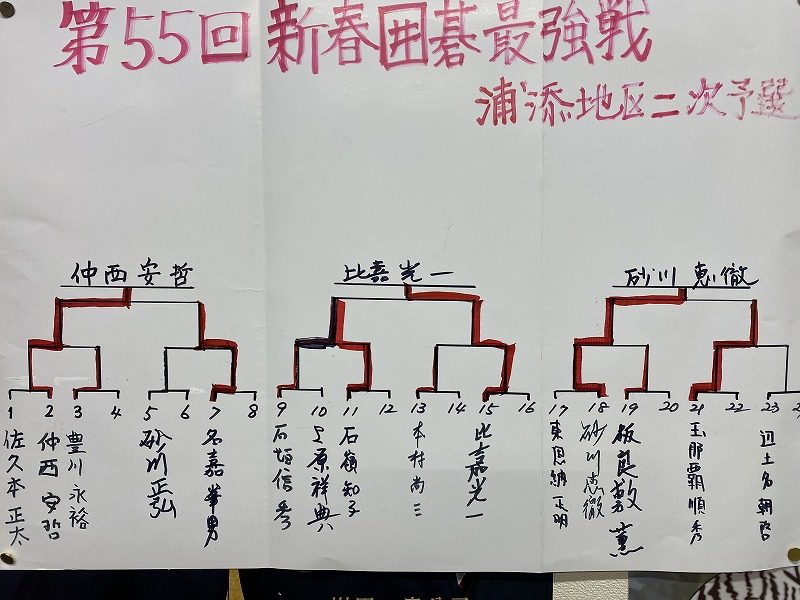 第55回 新春囲碁最強戦
浦添地区二次予選
仲西安哲 比嘉光一 砂川恵徹
1 2 3 4 5 6 7 8 9 10 11 12 13 14 15 16 17 18 19 20 21 22 23
佐久本正太
仲西安哲
豊川永裕
砂川正弘
名嘉挙男
石垣信秀
上原祥典
石嶺知子
本村尚三
比嘉光一
東恩納正明
砂川恵徹
板良敷薫
玉那覇順秀
辺土名朝啓